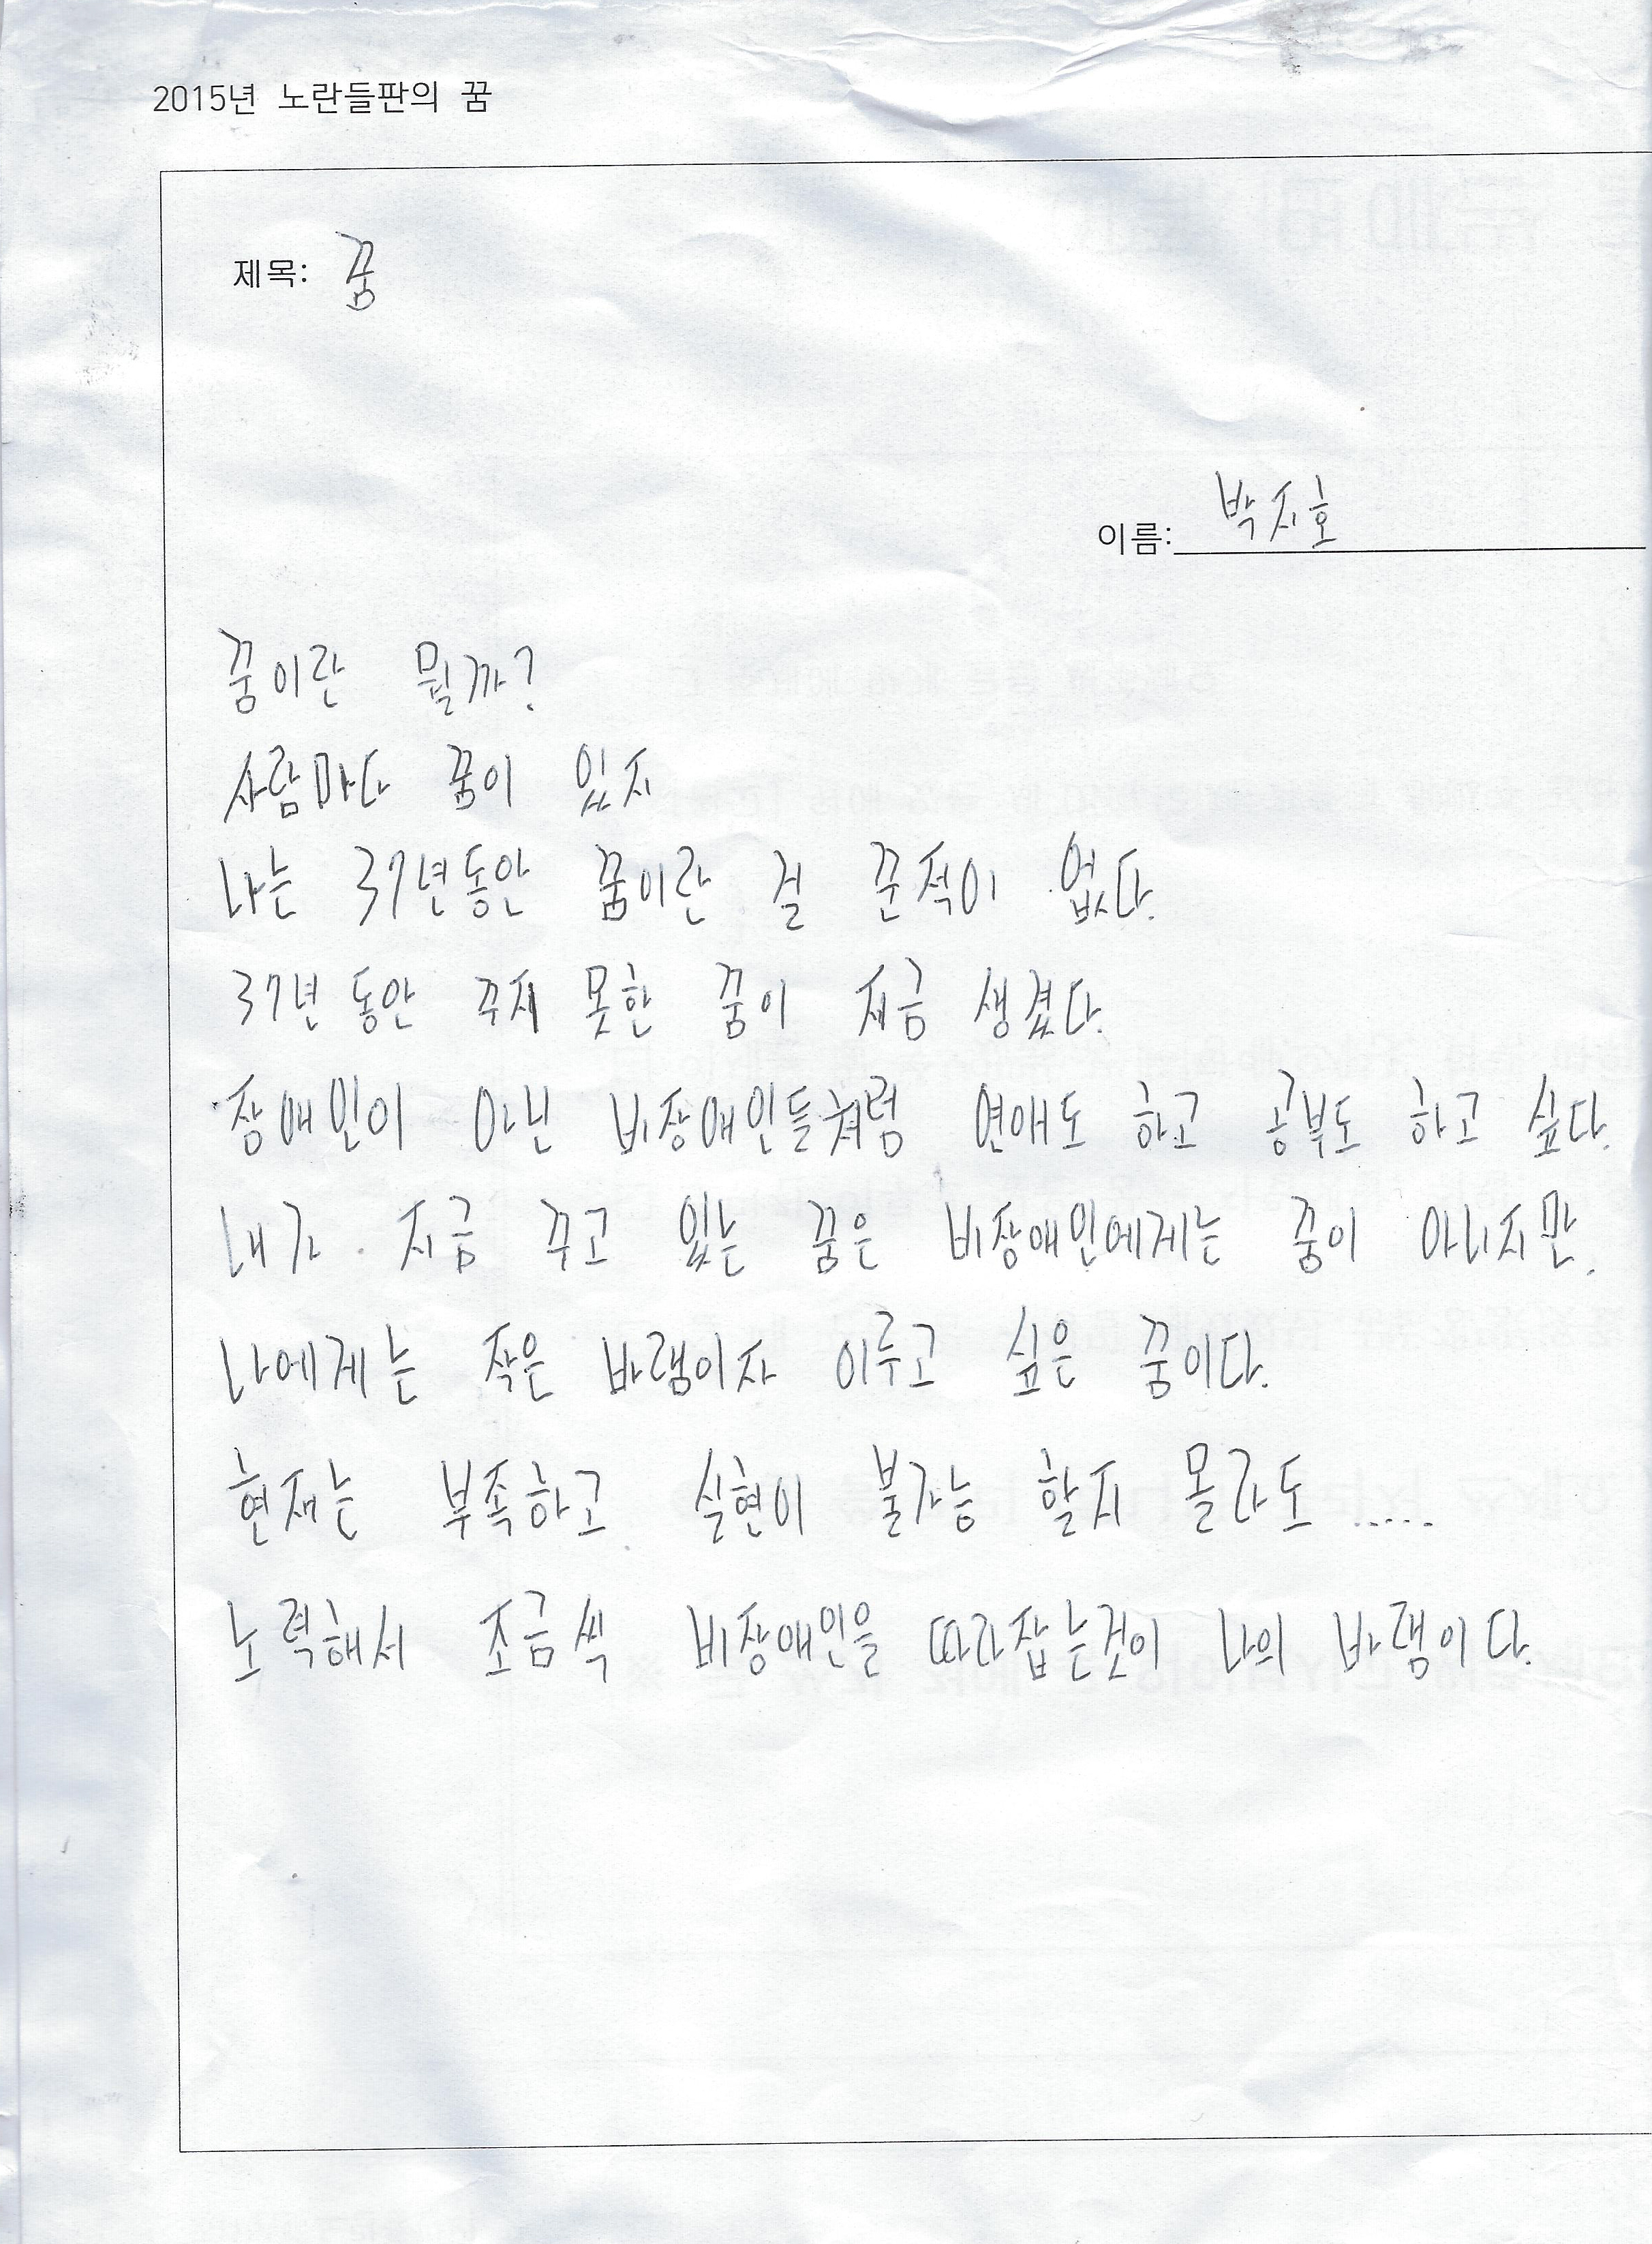 2015년 노란들판의 꿈
제목: 꿈
이름: 박지호
꿈이란 뭘까?
사람마다 꿈이 있지
나는 37년동안 꿈이란 걸 꾼적이 없다.
37년 동안 꾸지 못한 꿈이 지금 생겼다.
장애인이 아닌 비장애인들처럼 연애도 하고 공부도 하고 싶다.
내가 지금 꾸고 있는 꿈은 비장애인에게는 꿈이 아니지만.
나에게는 작은 바램이자 이루고 싶은 꿈이다.
현재는 부족하고 실현이 불가능 할지 몰라도 .....
노력해서 조금씩 비장애인을 따라잡는것이 나의 바램이다.